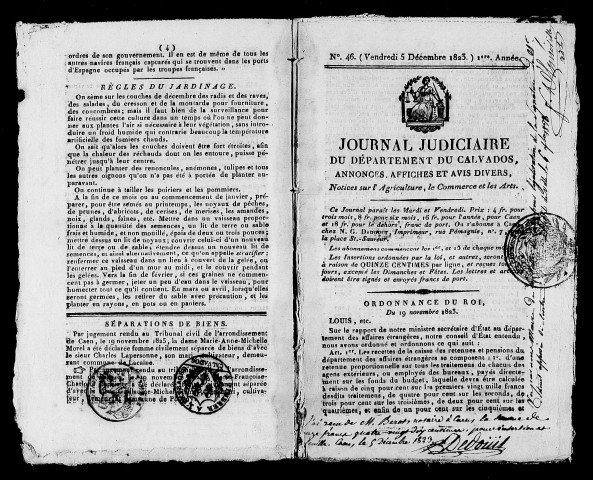 (4)
ordres de son gouvernement. Il en est de même de tous les
autres navires français capturés qui se trouvent dans les ports
d'Espagne occupés par les troupes françaises.
RÈGLES DU JARDINAGE.
On sème sur les couches de décembre des radis et des raves,
des salades, du cresson et de la moutarde pour fourniture,
des concombres; mais il faut bien de la surveillance pour
faire réussir cette culture dans un temps où l'on ne peut donner
aux plantes l'air si nécessaire à leur végétation, sans introduire
un froid humide qui contrarie beaucoup la température
artificielle des fumiers chauds.
On sait qu'alors les couches doivent être fort étroites, afin
que la chaleur des réchauds dont on les entoure, puisse pénétrer
jusqu'à leur centre.
On peut planter des renoncules, anémones, tulipes et tous
les autres oignons qu'on n'a pas été à portée de planter auparavant.
On continue à tailler les poiriers et les pommiers.
A la fin de ce mois ou au commencement de janvier, préparer,
pour être semés au printemps, les noyaux de pêches,
de prunes, d'abricots, de cerises, de merises, les amandes,
noix, glands, faînes, etc. Mettre dans un vaisseau proportionné
à la quantité de ses semences, un lit de sable ou de
terre meuble, épais d'un pouce et demi, ou de deux pouces;
mettre dessus un lit de noyaux; couvrir celui-ci d'un nouveau
lit de terre ou de sable; étendre dessus un nouveau lit de
semences, et ainsi alternativement, ce qu'on appelle stratifier;
enfermer le vaisseau dans un lieu à couvert de la gelée, ou
l'enterrer au pied d'un mur au midi, et le couvrir pendant
les gelées. Vers la fin de février, si ces graines ne commencent
pas à germer, jeter un peu d'eau dans le vaisseau, pour
humecter tout ce qu'il contient. En mars ou avril, lorsqu'elles
seront germées, les retirer du sable avec précaution, et les
planter en rayons, en pots ou en paniers.
SÉPARATIONS DE BIENS.
Par jugement rendu au Tribunal civil de l'arrondissement
de Caen, le 19 novembre 1823, la dame Marie-Anne-Michelle
Morel a été déclarée femme civilement séparée de biens d'avec
le sieur Charles Lapersonne, son mari,
N°. 46. (Vendredi 5 Décembre 1823.) 1ère. Année.
JOURNAL JUDICIAIRE
DU DÉPARTEMENT DU CALVADOS,
ANNONCES, AFFICHES ET AVIS DIVERS,
Notices sur l'Agriculture, le Commerce et les Arts.
Ce Journal paraît les Mardi et Vendredi. Prix : 4 fr. pour
trois mois, 8 fr. pour six mois, 16 fr. pour l'année, pour Caen
et 18 fr. pour le dehors, franc de port. On s'abonne à Caen
chez N. G.
la place St.-Sauveur.
Les abonnemens commencent les 1er. et 15 de chaque mois.
Les Insertions ordonnées par la loi, et autres, seront
à raison de QUINZE CENTIMES par ligne, et reçues tous les
jours, excepté les Dimanches et Fêtes. Les lettres et
doivent être signés et envoyés francs de port.
ORDONNANCE DU ROI,
Du 19 novembre 1823.
LOUIS, etc.
Sur le rapport de notre ministre secrétaire d'État au département
des affaires étrangères, notre conseil d'État entendu
nous avons ordonné et ordonnons ce qui suit :
Art. 1er. Les recettes de la caisse des retenues et pensions du
département des affaires étrangères se composent : 1°. d'une
retenue proportionnelle sur tous les traitemens de chacun des
agens extérieurs, ou employés des bureaux, payés directement
sur les fonds du budget, laquelle devra être calculée
à raison de cinq pour cent sur les premiers vingt mille francs
desdits traitemens, de quatre pour cent sur les seconds, de
trois pour cent sur les troisièmes, de deux pour cent sur les
quatrièmes, et enfin d'un pour cent sur les cinquièmes et